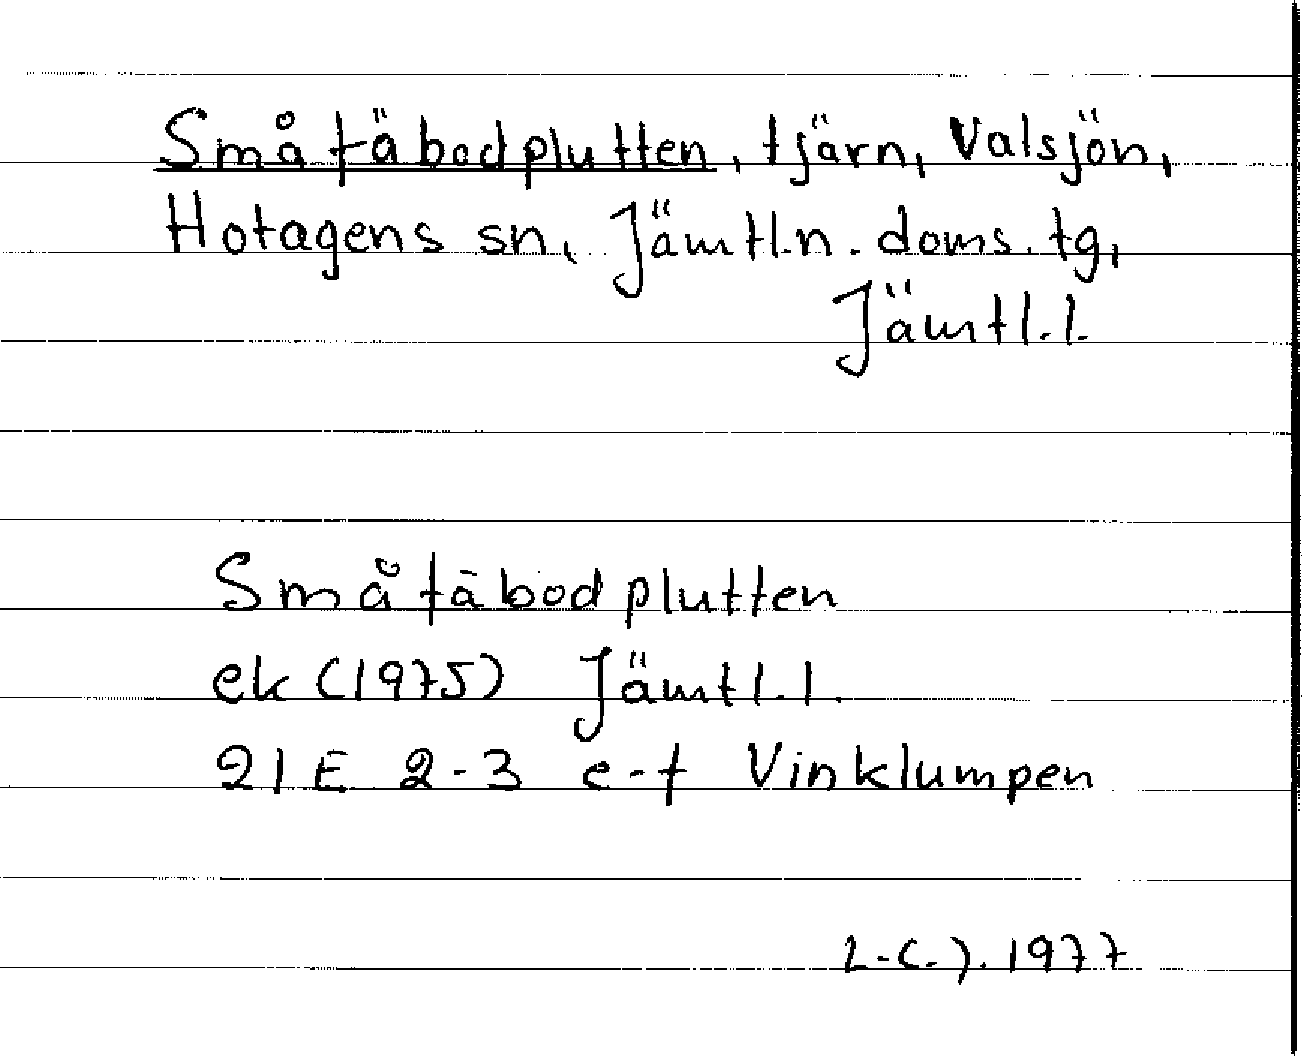 Småfäbodplutten, tjärn, Valsjön,
Hotagens sn, Jämtl.n. doms. tg,
Jämtl.l.
Småfäbodplutten
ek (1975) Jämtl.l.
21E 2-3 e-f Vinklumpen
L-C.J. 1977